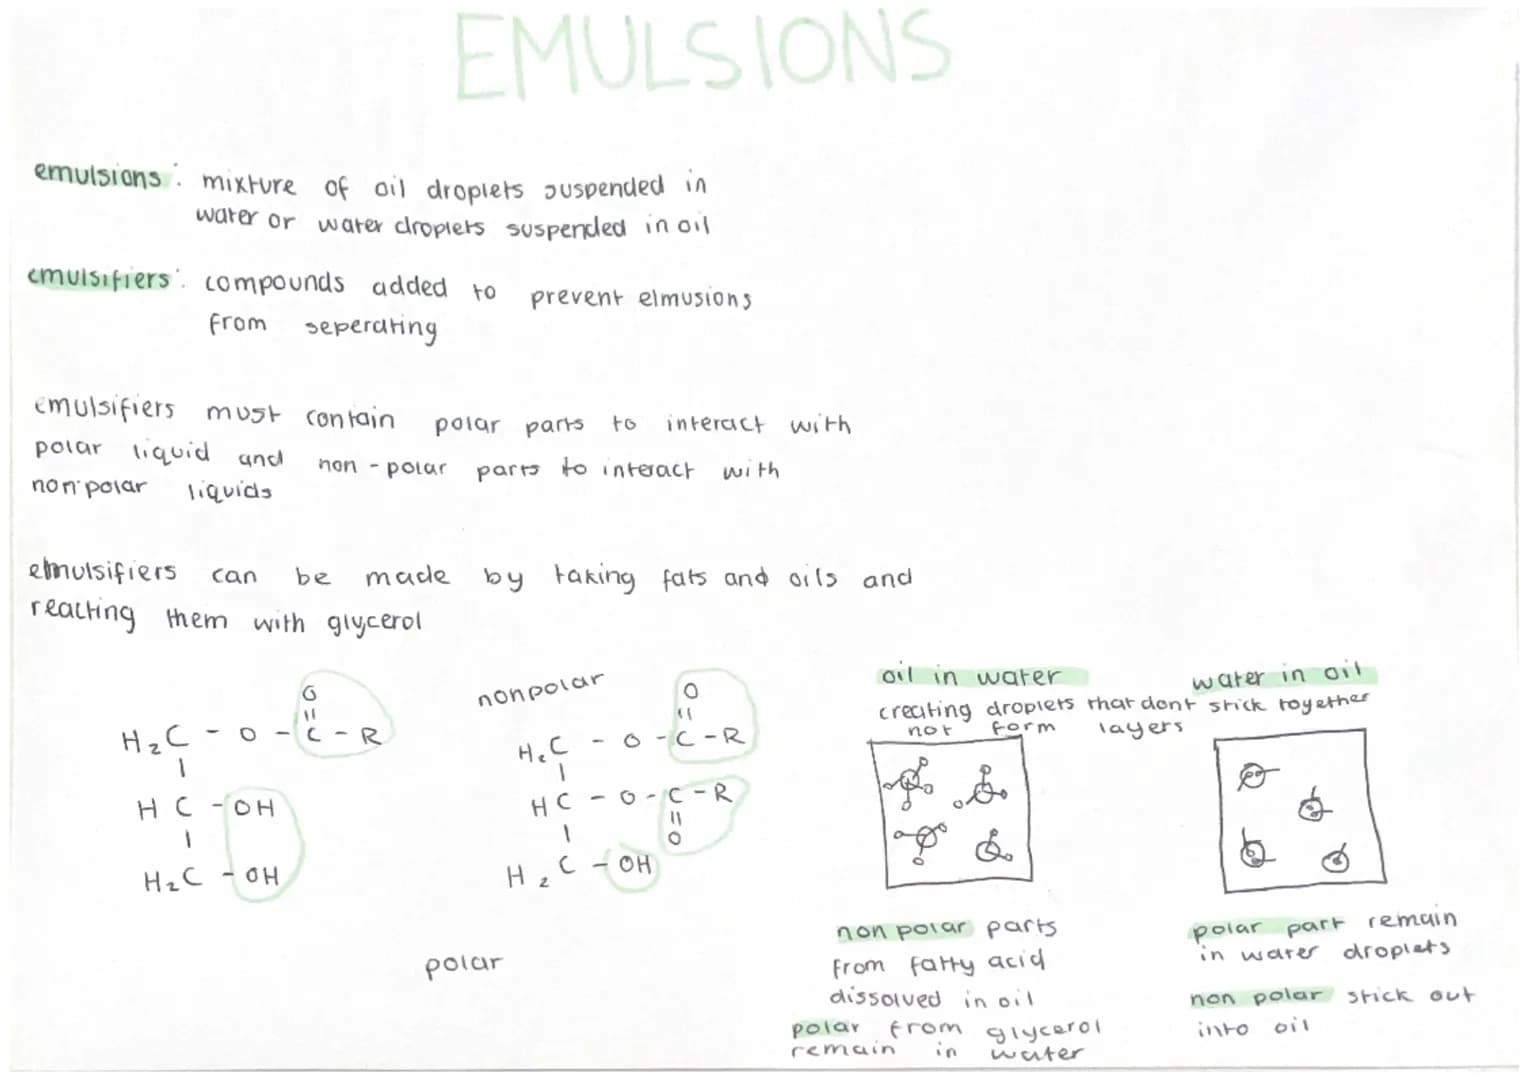 EMULSIONS
emulsions: mixture of oil droplets suspended in
water or water droplets suspended in oil
emulsifiers: compounds added to prevent elmusions
from seperating
emulsifiers must contain polar parts to interact with
polar liquid and non-polar parts to interact with
non polar liquids
emulsifiers can be made by taking fats and oils and
reacting them with glycerol
O
H2C - O - C - R
HC - OH
H2C - OH
nonpolar
O
H2C - O - C - R
HC - O - C - R
O
H2C - OH
polar
oil in water
water in oil
creating droplets that dont stick together
not form layers
non polar parts
from fatty acid
dissolved in oil
polar from glycerol
remain in water
polar part remain
in water droplets
non polar stick out
into oil